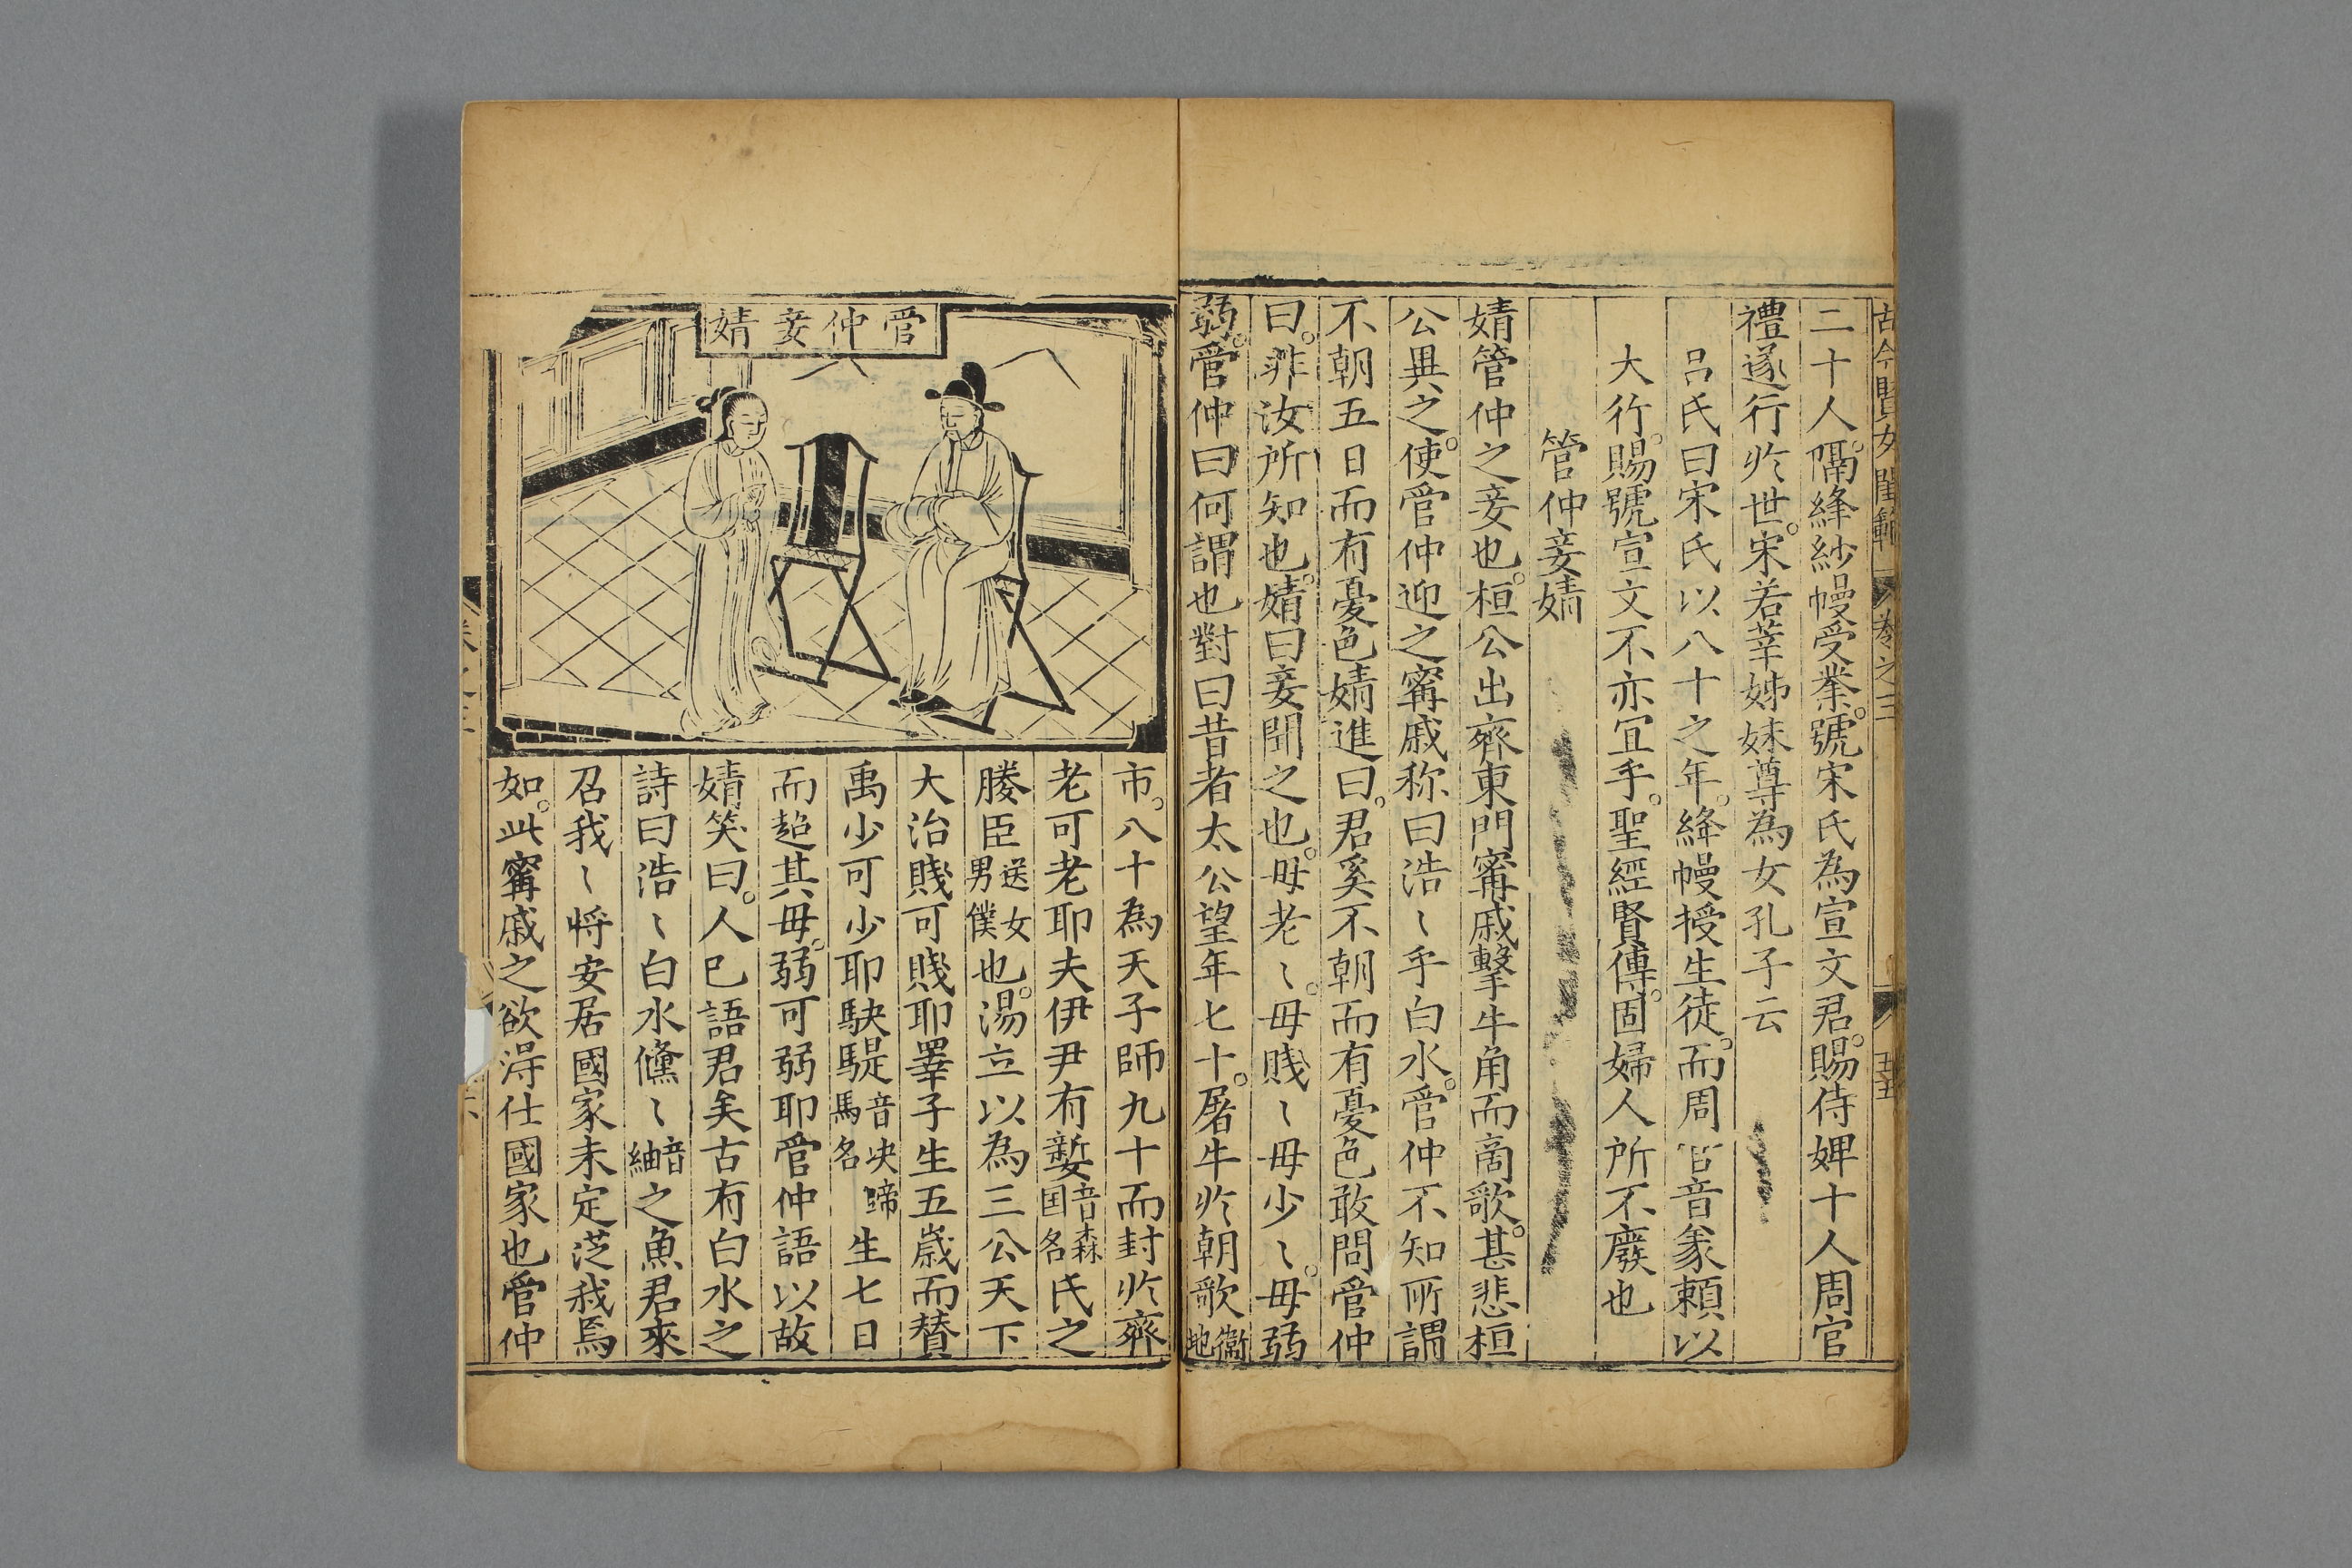 古今賢女閨範 卷之三 五十五
二十人。隔絳紗幔受業。號宋氏為宣文君。賜侍婢十人周官
禮遂行扵世。宋若莘姊妹尊為女孔子云
呂氏曰宋氏以八十之年。絳幔授生徒。而周官音彖賴以
大行。賜號宣文不亦宜乎。聖經賢傳。固婦人所不廢也
管仲妾婧
婧管仲之妾也。桓公出齊東門甯戚擊牛角而商歌。甚悲桓
公異之。使管仲迎之甯戚称曰浩〻乎白水。管仲不知所謂
不朝五日而有憂色婧進曰。君奚不朝而有憂色敢問管仲
曰。非汝所知也。婧曰妾聞之也。毋老〻。毋賤〻毋少〻。毋弱
弱。管仲曰何謂也對曰昔者太公望年七十。屠牛扵朝歌衞地
管仲妾婧
市。八十為天子師九十而封扵齊
老可老耶夫伊尹有㜪音森国名氏之
媵臣送女男僕也。湯立以為三公天下
大治賤可賤耶睪子生五歲而賛
禹少可少耶駃騠音决蹄馬名生七日
而超其母。弱可弱耶管仲語以故
婧笑曰。人已語君矣古有白水之
詩曰浩〻白水儵〻音紬之魚君來
召我〻将安居國家未定從我焉
如。此甯戚之欲淂仕國家也管仲